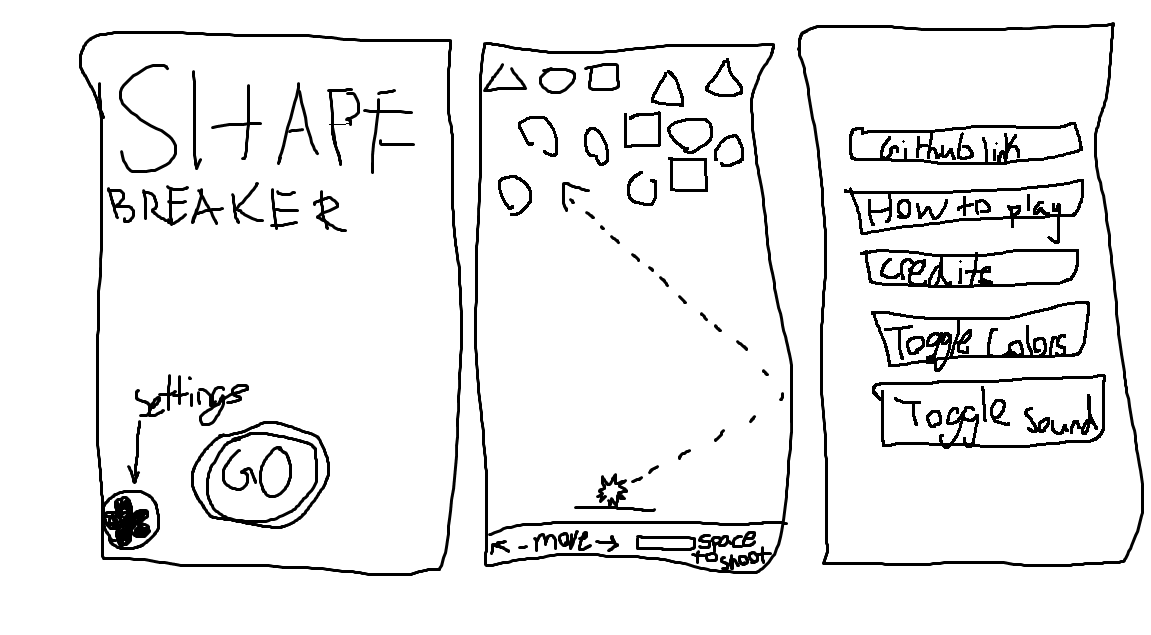 SHAPE
BREAKER
settings
GO
← - move →
space
to shoot
Github link
How to play
credits
Toggle Colors
Toggle sound